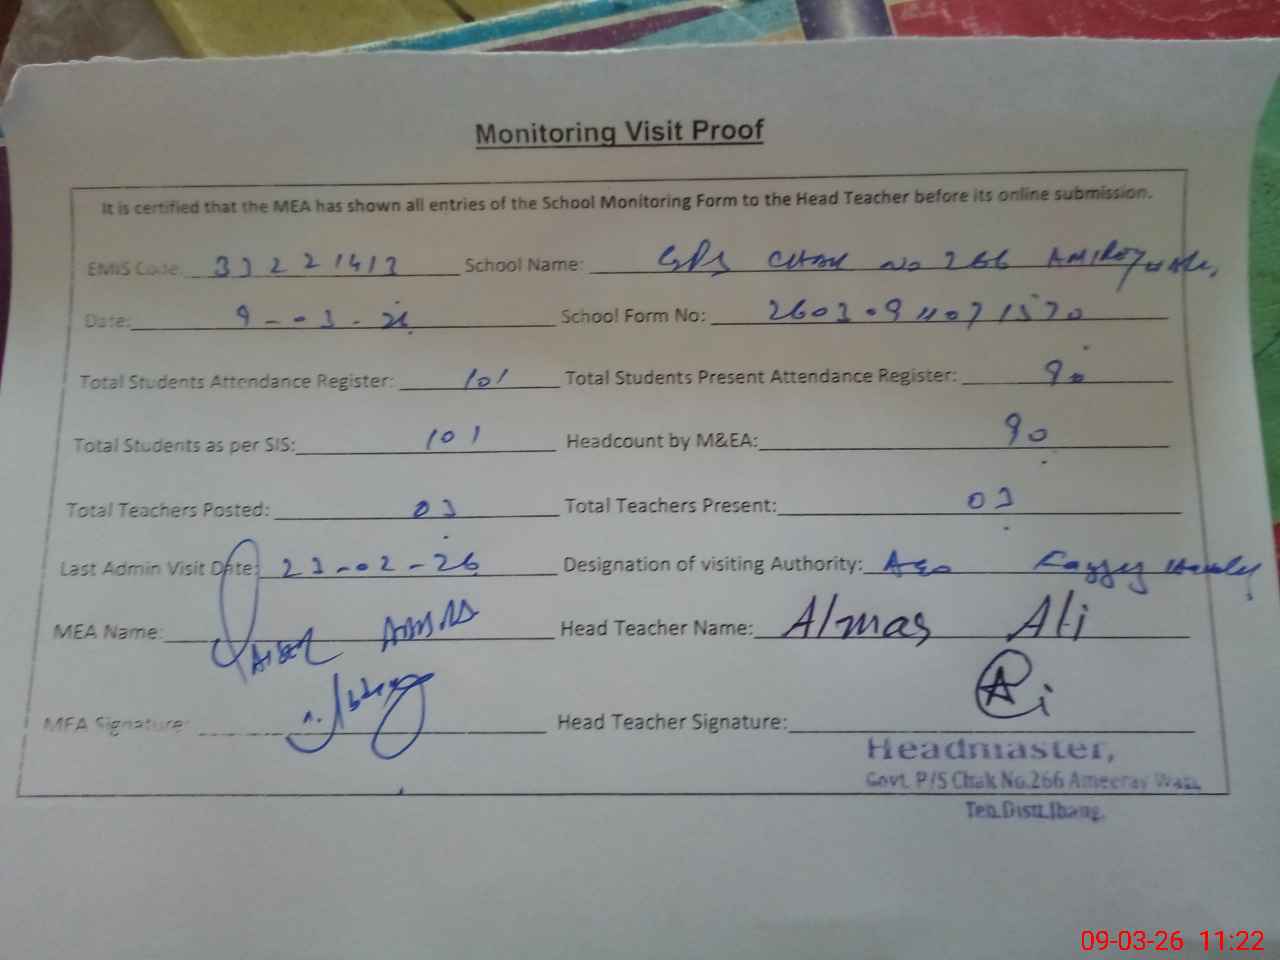 Monitoring Visit Proof
It is certified that the MEA has shown all entries of the School Monitoring Form to the Head Teacher before its online submission.
EMIS Code: 33221413 School Name: GPS CHAK No 266
Date: 9-03-26 School Form No:
Total Students Attendance Register: 101 Total Students Present Attendance Register: 90
Total Students as per SIS: 101 Headcount by M&EA: 90
Total Teachers Posted: 03 Total Teachers Present: 03
Last Admin Visit Date: 23-02-26 Designation of visiting Authority: AEO
MEA Name: Head Teacher Name: Almas Ali
MEA Signature: Head Teacher Signature:
Headmaster,
Govt. P/S Chak No.266 Ameeray Wala
Teh Distt Jhang.
09-03-26 11:22